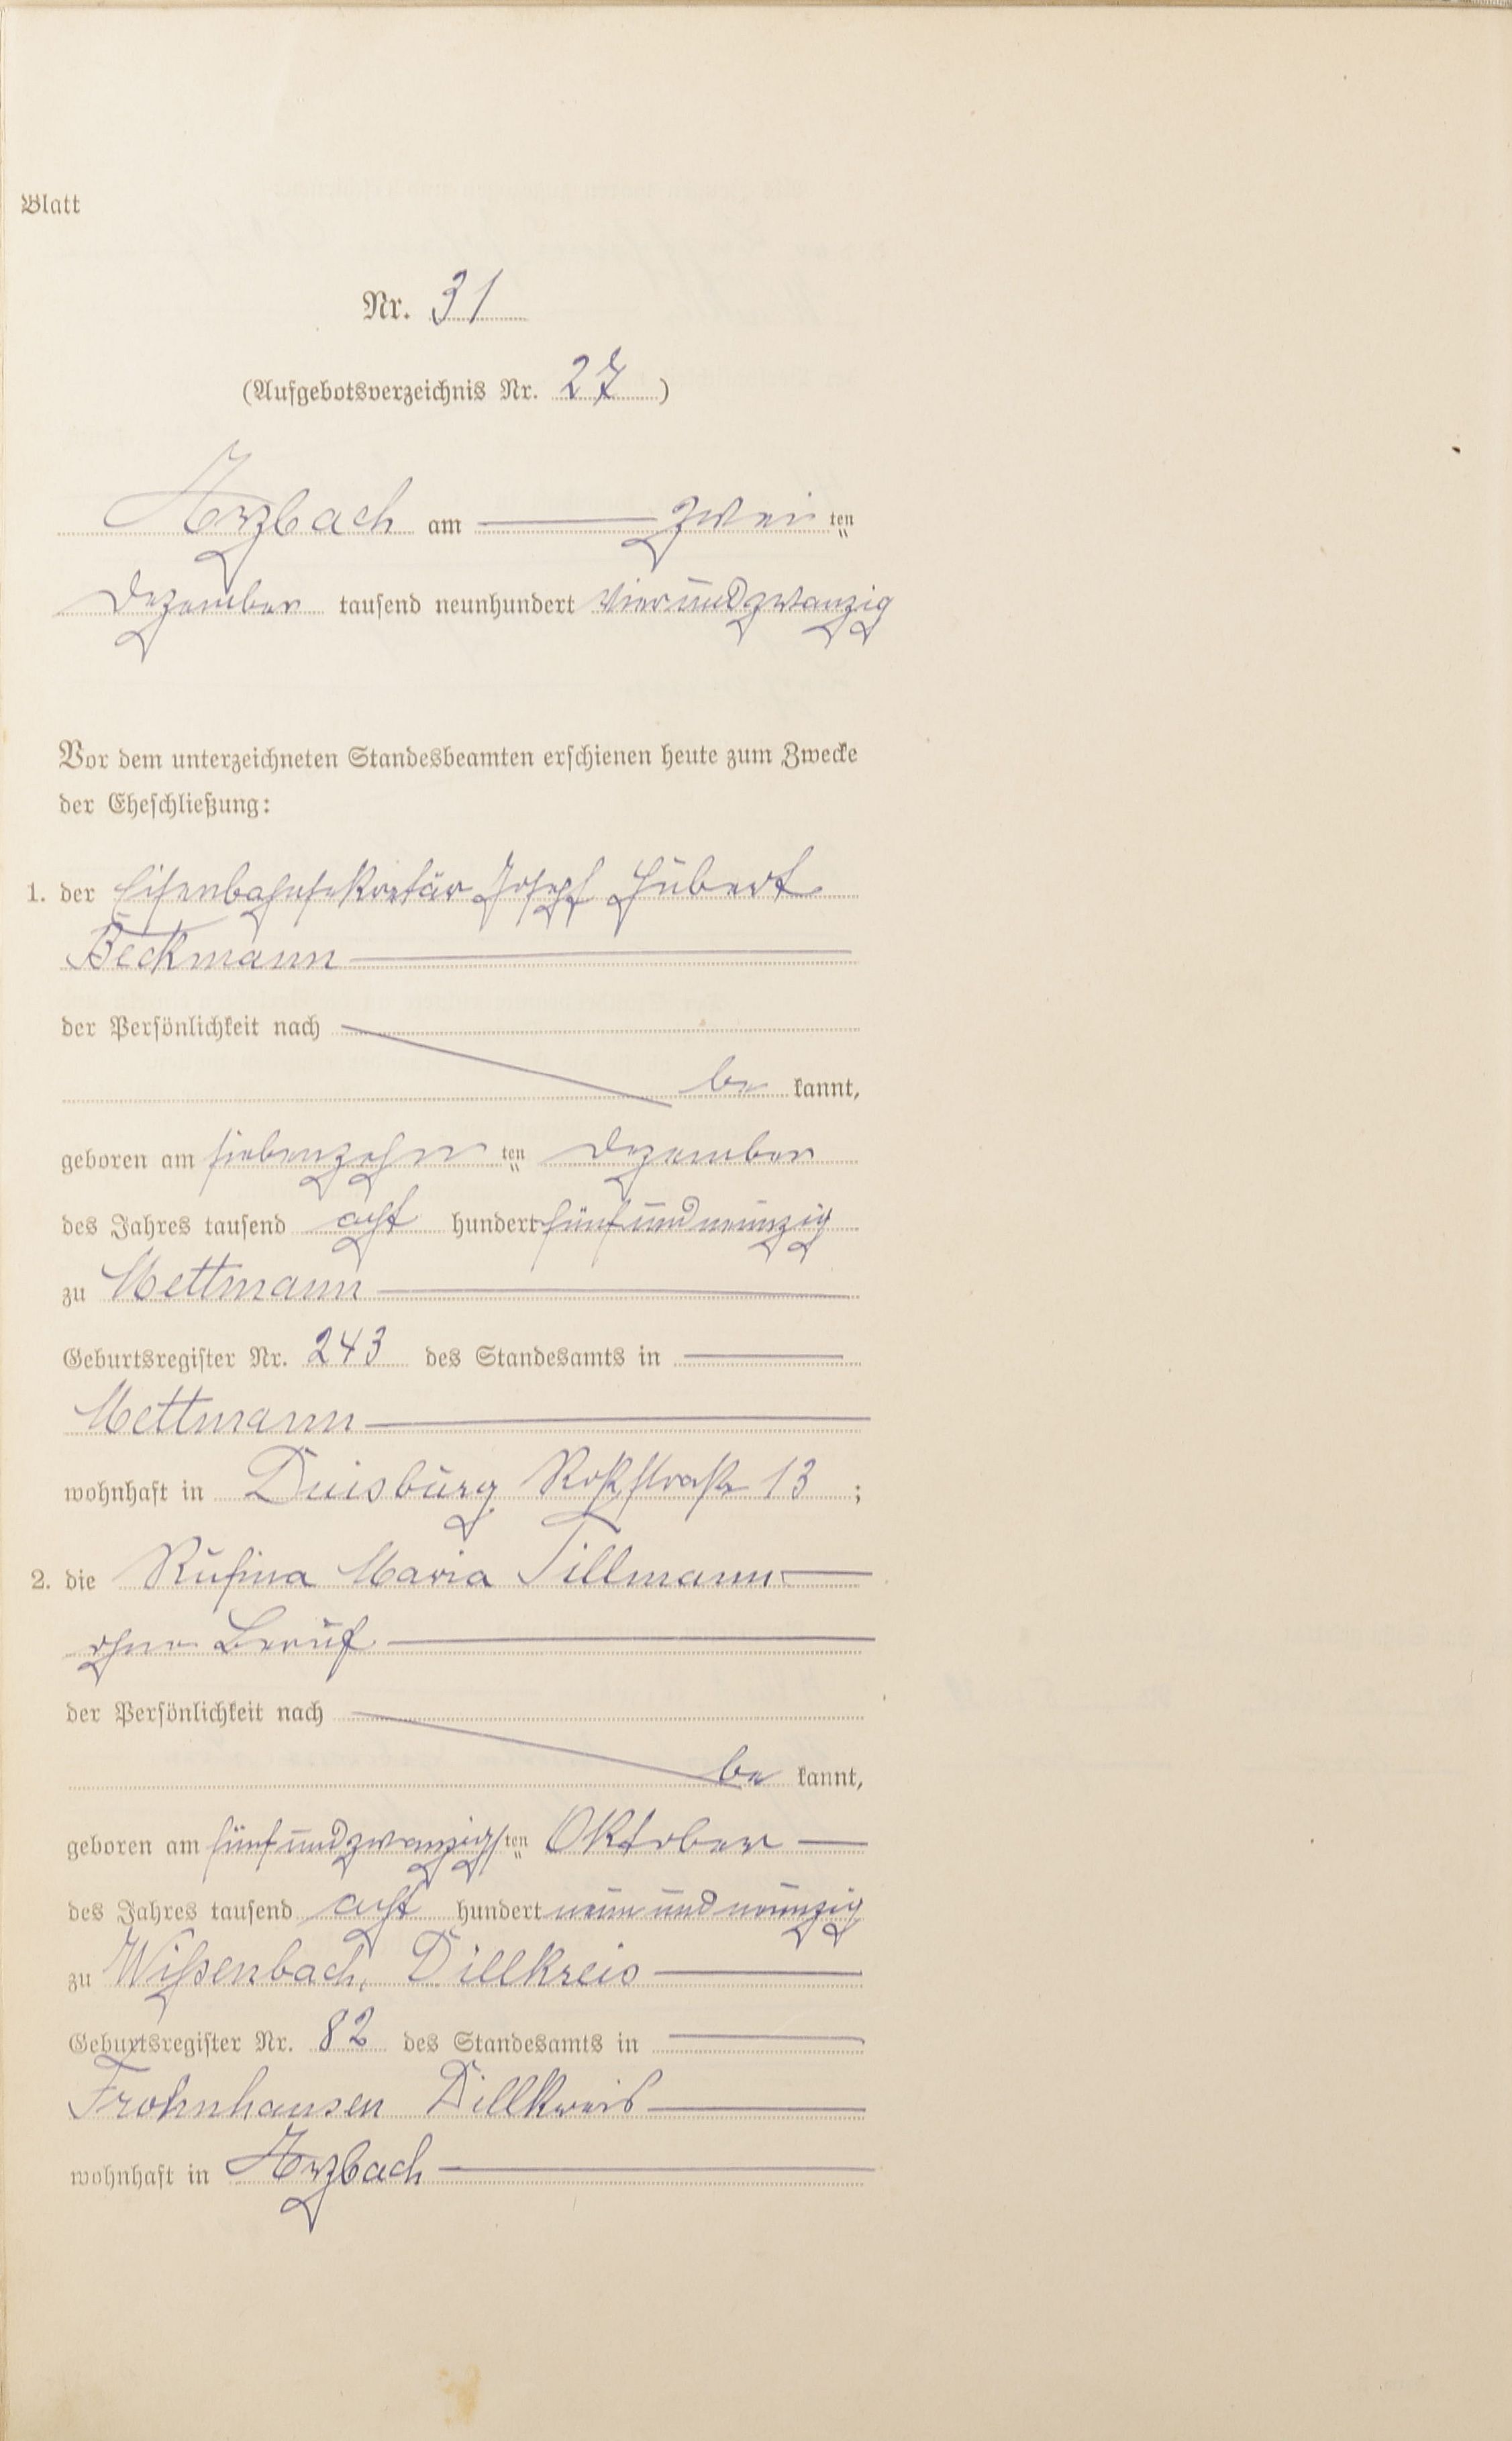 Blatt
Nr. 31
(Aufgebotsverzeichnis Nr. 27)
Arzbach am zwei ten
Dezember tausend neunhundert vierundzwanzig
Vor dem unterzeichneten Standesbeamten erschienen heute zum Zwecke
der Eheschließung:
1. der Eisenbahnsekretär Josef Hubert
Beckmann
der Persönlichkeit nach
be kannt,
geboren am siebenzehn ten Dezember
des Jahres tausend acht hundert fünfundneunzig
zu Mettmann
Geburtsregister Nr. 243 des Standesamts in
Mettmann
wohnhaft in Duisburg Roßstraße 13 ;
2. die Rufina Maria Tillmann
ohne Beruf
der Persönlichkeit nach
be kannt,
geboren am fünfundzwanzigsten Oktober
des Jahres tausend acht hundert neunundneunzig
zu Wißenbach, Dillkreis
Geburtsregister Nr. 82 des Standesamts in
Frohnhausen Dillkreis
wohnhaft in Arzbach